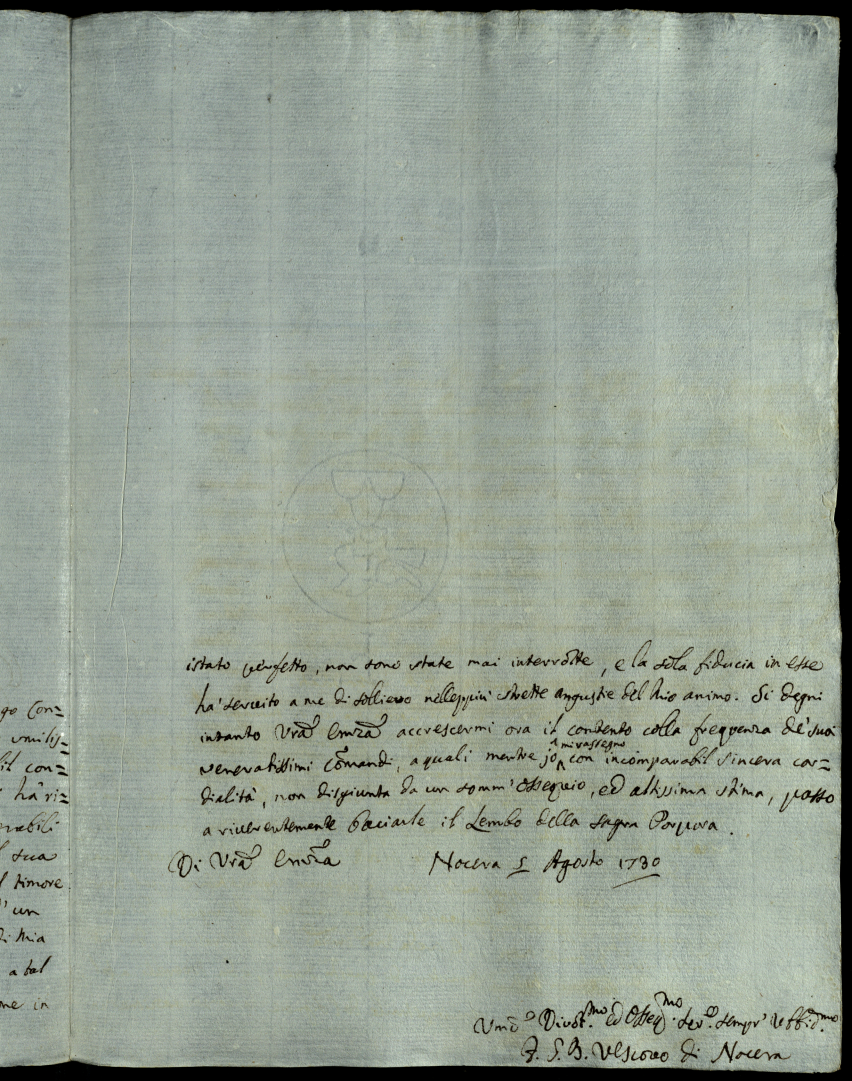 go Con=
umilis=
il con=
ha' ri=
rabili
l sua
l timore
un
di Mia
a tal
me in
istato perfetto, non sono state mai interrotte, e la sola fiducia in esse
ha' servito a me di sollievo nelleppiù strette angustie del Mio animo. Si degni
intanto Vrã Emzã accrescermi ora il contento colla frequenza de' suoi
veneratissimi Cõmandi, a quali mentre jo mi rassegno con incomparabil sincera cor=
dialità, non disgiunta da un somm' ossequio, ed altissima stima, passo
a riverentemente baciarle il Lembo della sagra Porpora.
Di Vrã Emzã Nocera 5 Agosto 1730
Divot.mo ed Osseq.mo sempr'
Vescovo di Nocera